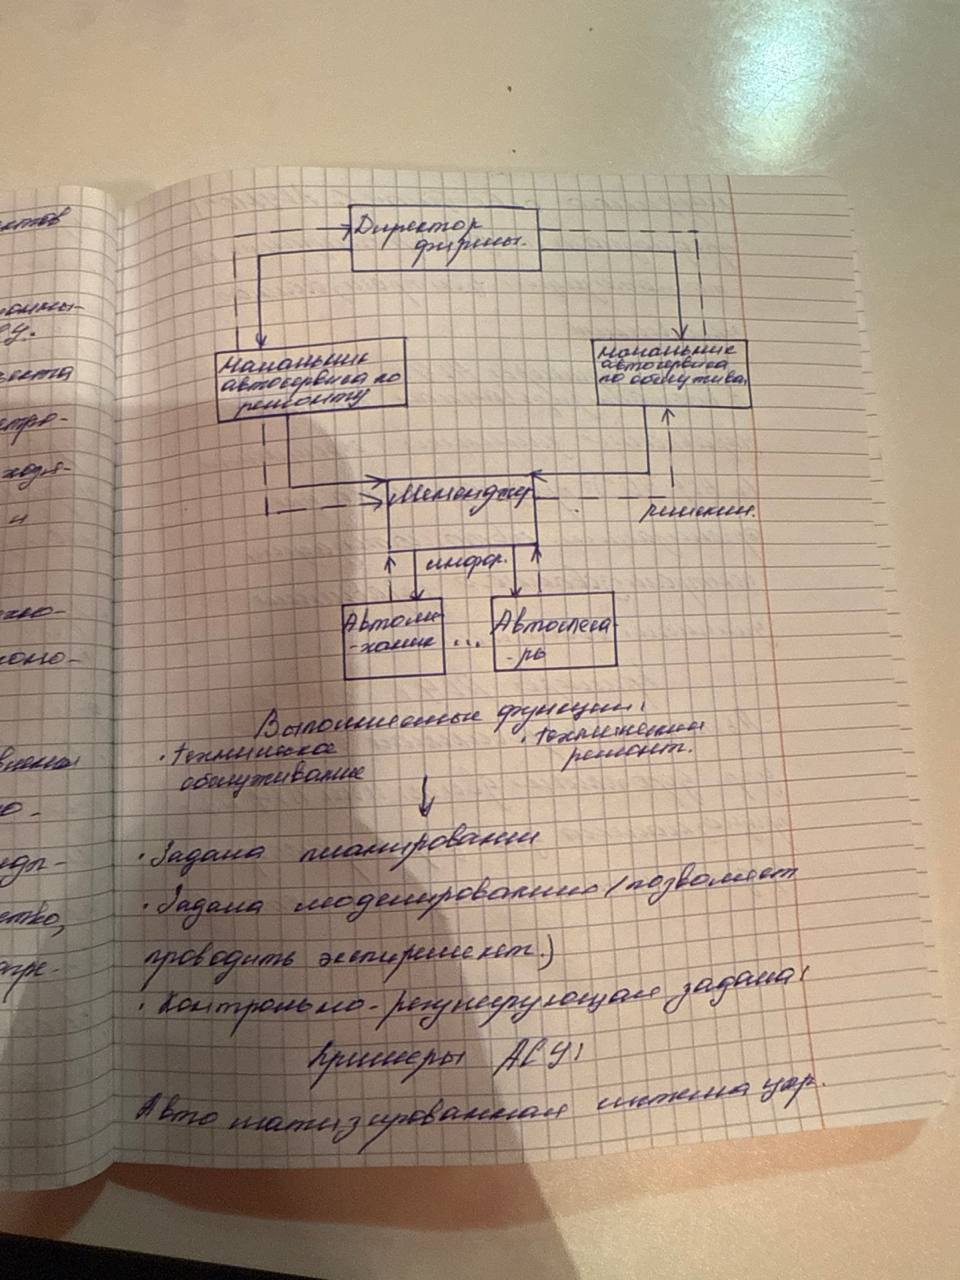 ектов
Директор
фирмы.
У.
екта
Начальник
автосервиса по
ремонту
Начальник
автосервиса
по обслужива.
стро-
ходя-
и
Менеджер
решения.
инфор.
Автоме-
-ханик
...
Автослеса-
-рь
Выполняемые функции:
· техническое
обслуживание
· технический
ремонт.
о-
ство,
· Задача планирования
· Задача моделирования (позволяет
проводить эксперимент.)
· Контрольно-регулирующая задача:
Примеры АСУ:
Автоматизированная система упр.